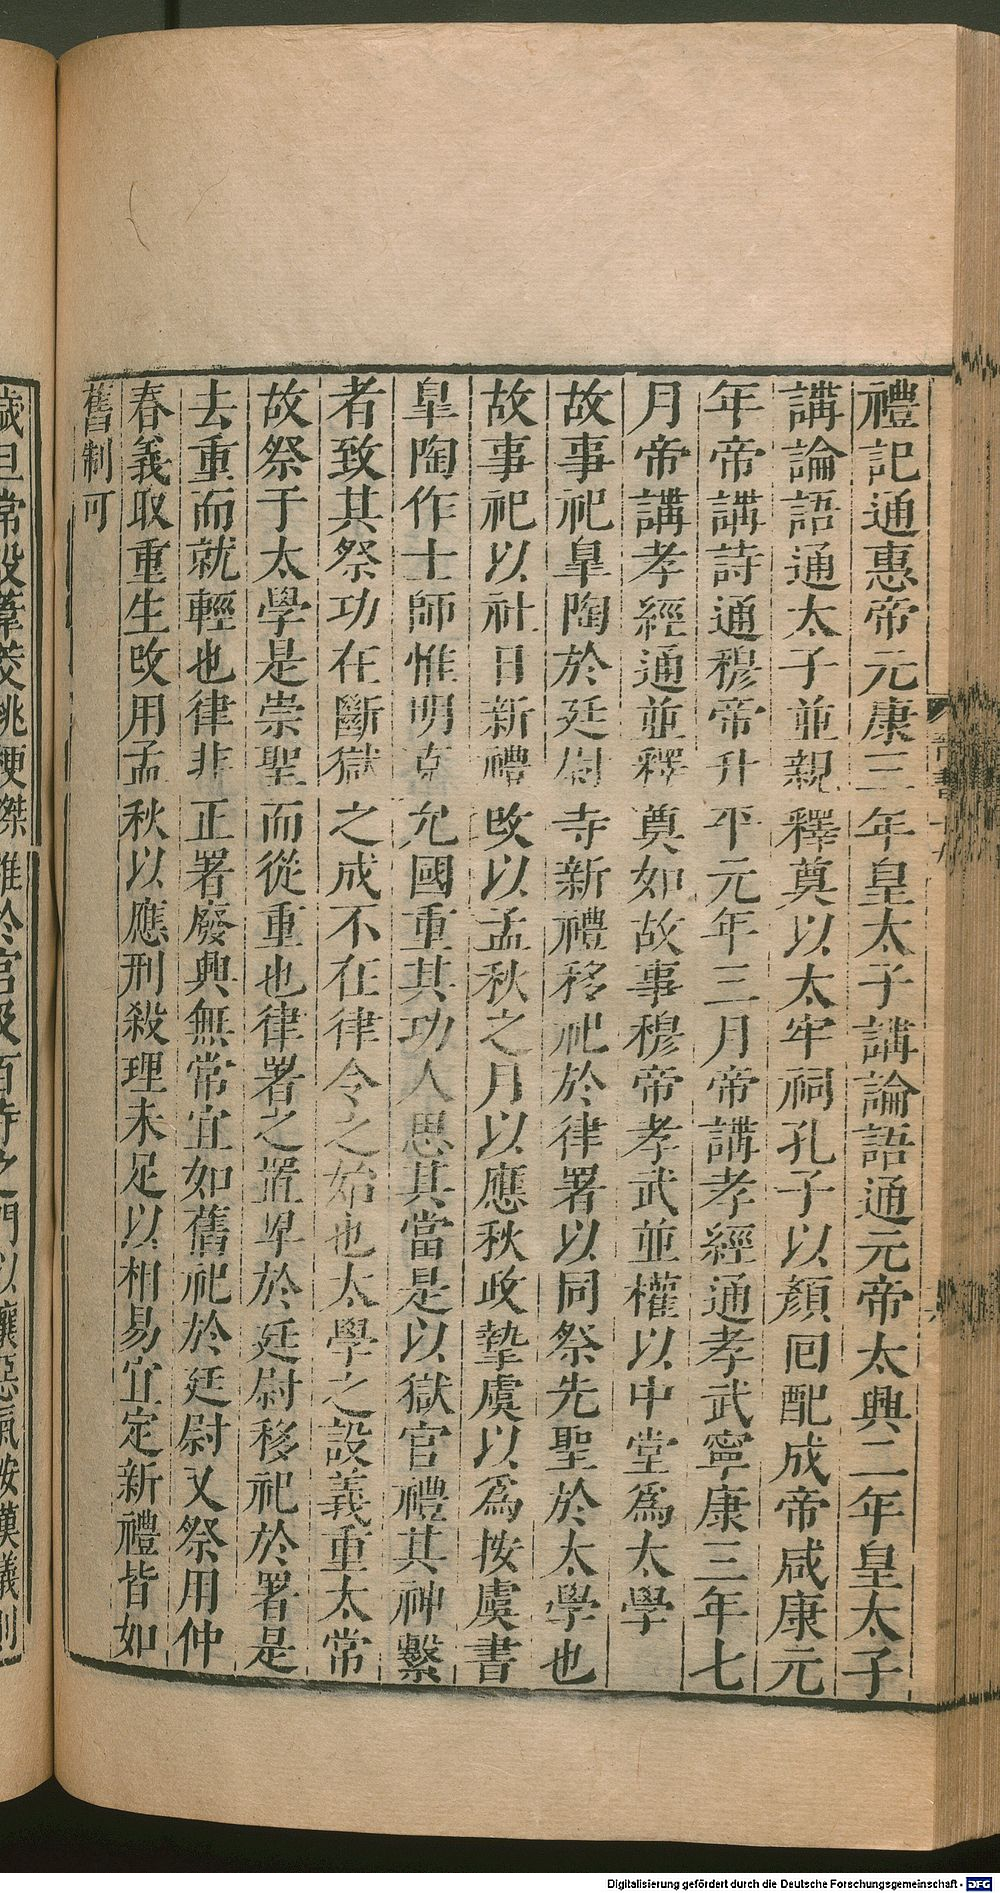 禮記通惠帝元康三年皇太子講論語通元帝太興二年皇太子
講論語通太子並親釋奠以太牢祠孔子以顏回配成帝咸康元
年帝講詩通穆帝升平元年三月帝講孝經通孝武寧康三年七
月帝講孝經通並釋奠如故事穆帝孝武並權以中堂爲太學
故事祀皐陶於廷尉寺新禮移祀於律署以同祭先聖於太學也
故事祀以社日新禮改以孟秋之月以應秋政摯虞以爲按虞書
皐陶作士師惟明克允國重其功人思其當是以獄官禮其神繫
者致其祭功在斷獄之成不在律令之始也太學之設義重太常
故祭于太學是崇聖而從重也律署之置卑於廷尉移祀於署是
去重而就輕也律非正署廢興無常宜如舊祀於廷尉又祭用仲
春義取重生改用孟秋以應刑殺理未足以相易宜定新禮皆如
舊制可
歲旦常設葦茭桃梗磔雞於宮及百寺之門以禳惡氣按漢儀則
Digitalisierung gefördert durch die Deutsche Forschungsgemeinschaft - DFG